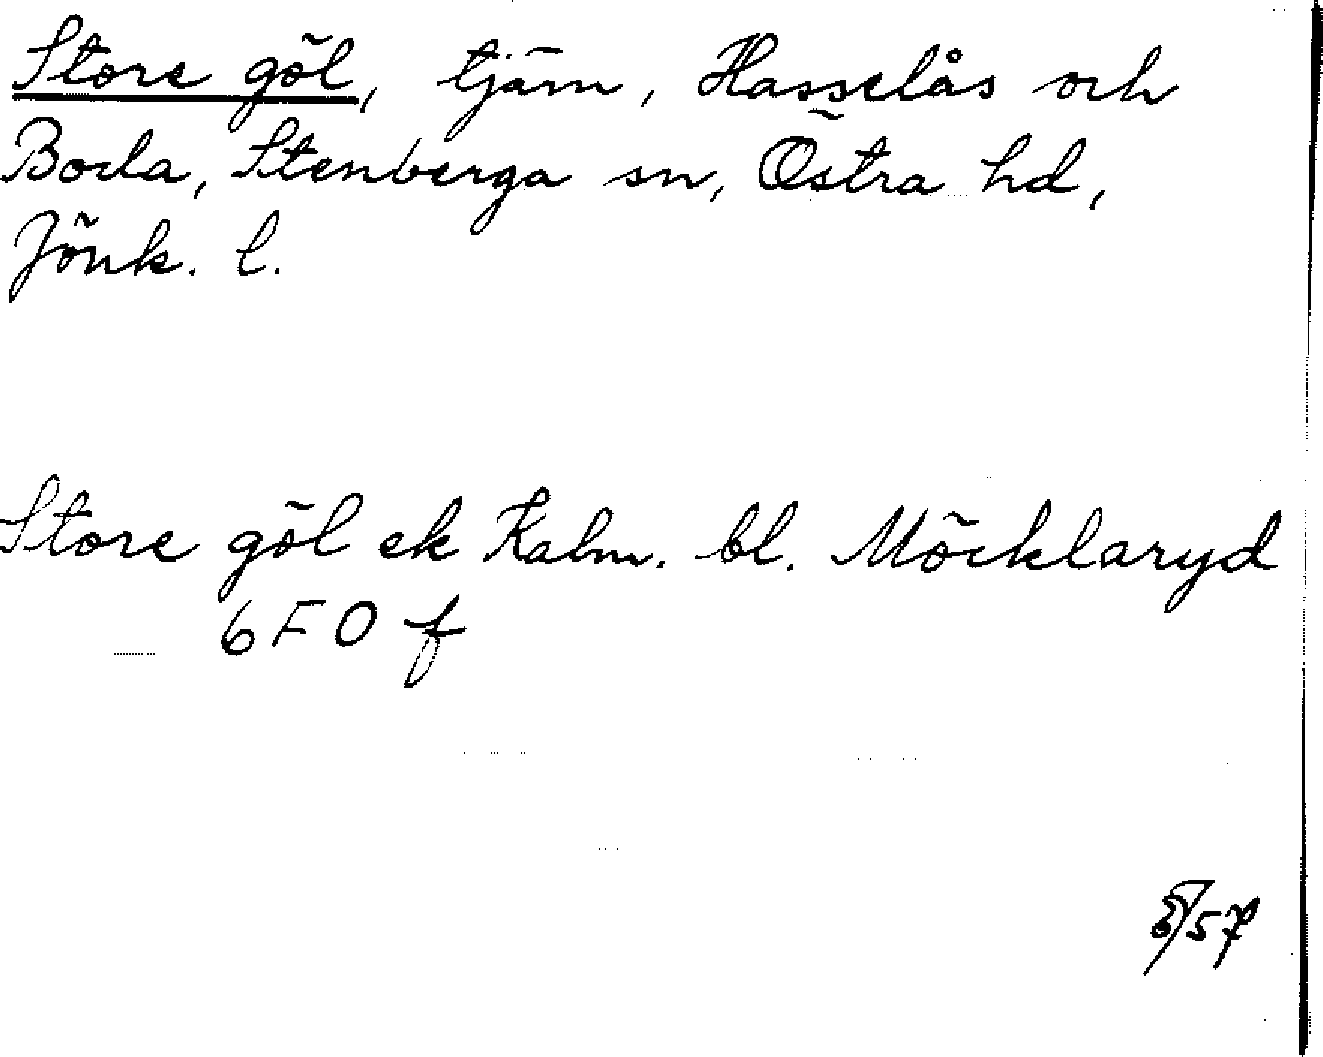 Store göl, tjärn, Hasselås och
Boda, Stenberga sn, Östra hd,
Jönk. l.
Store göl ek Kalm. bl. Möcklaryd
6 F 0 f